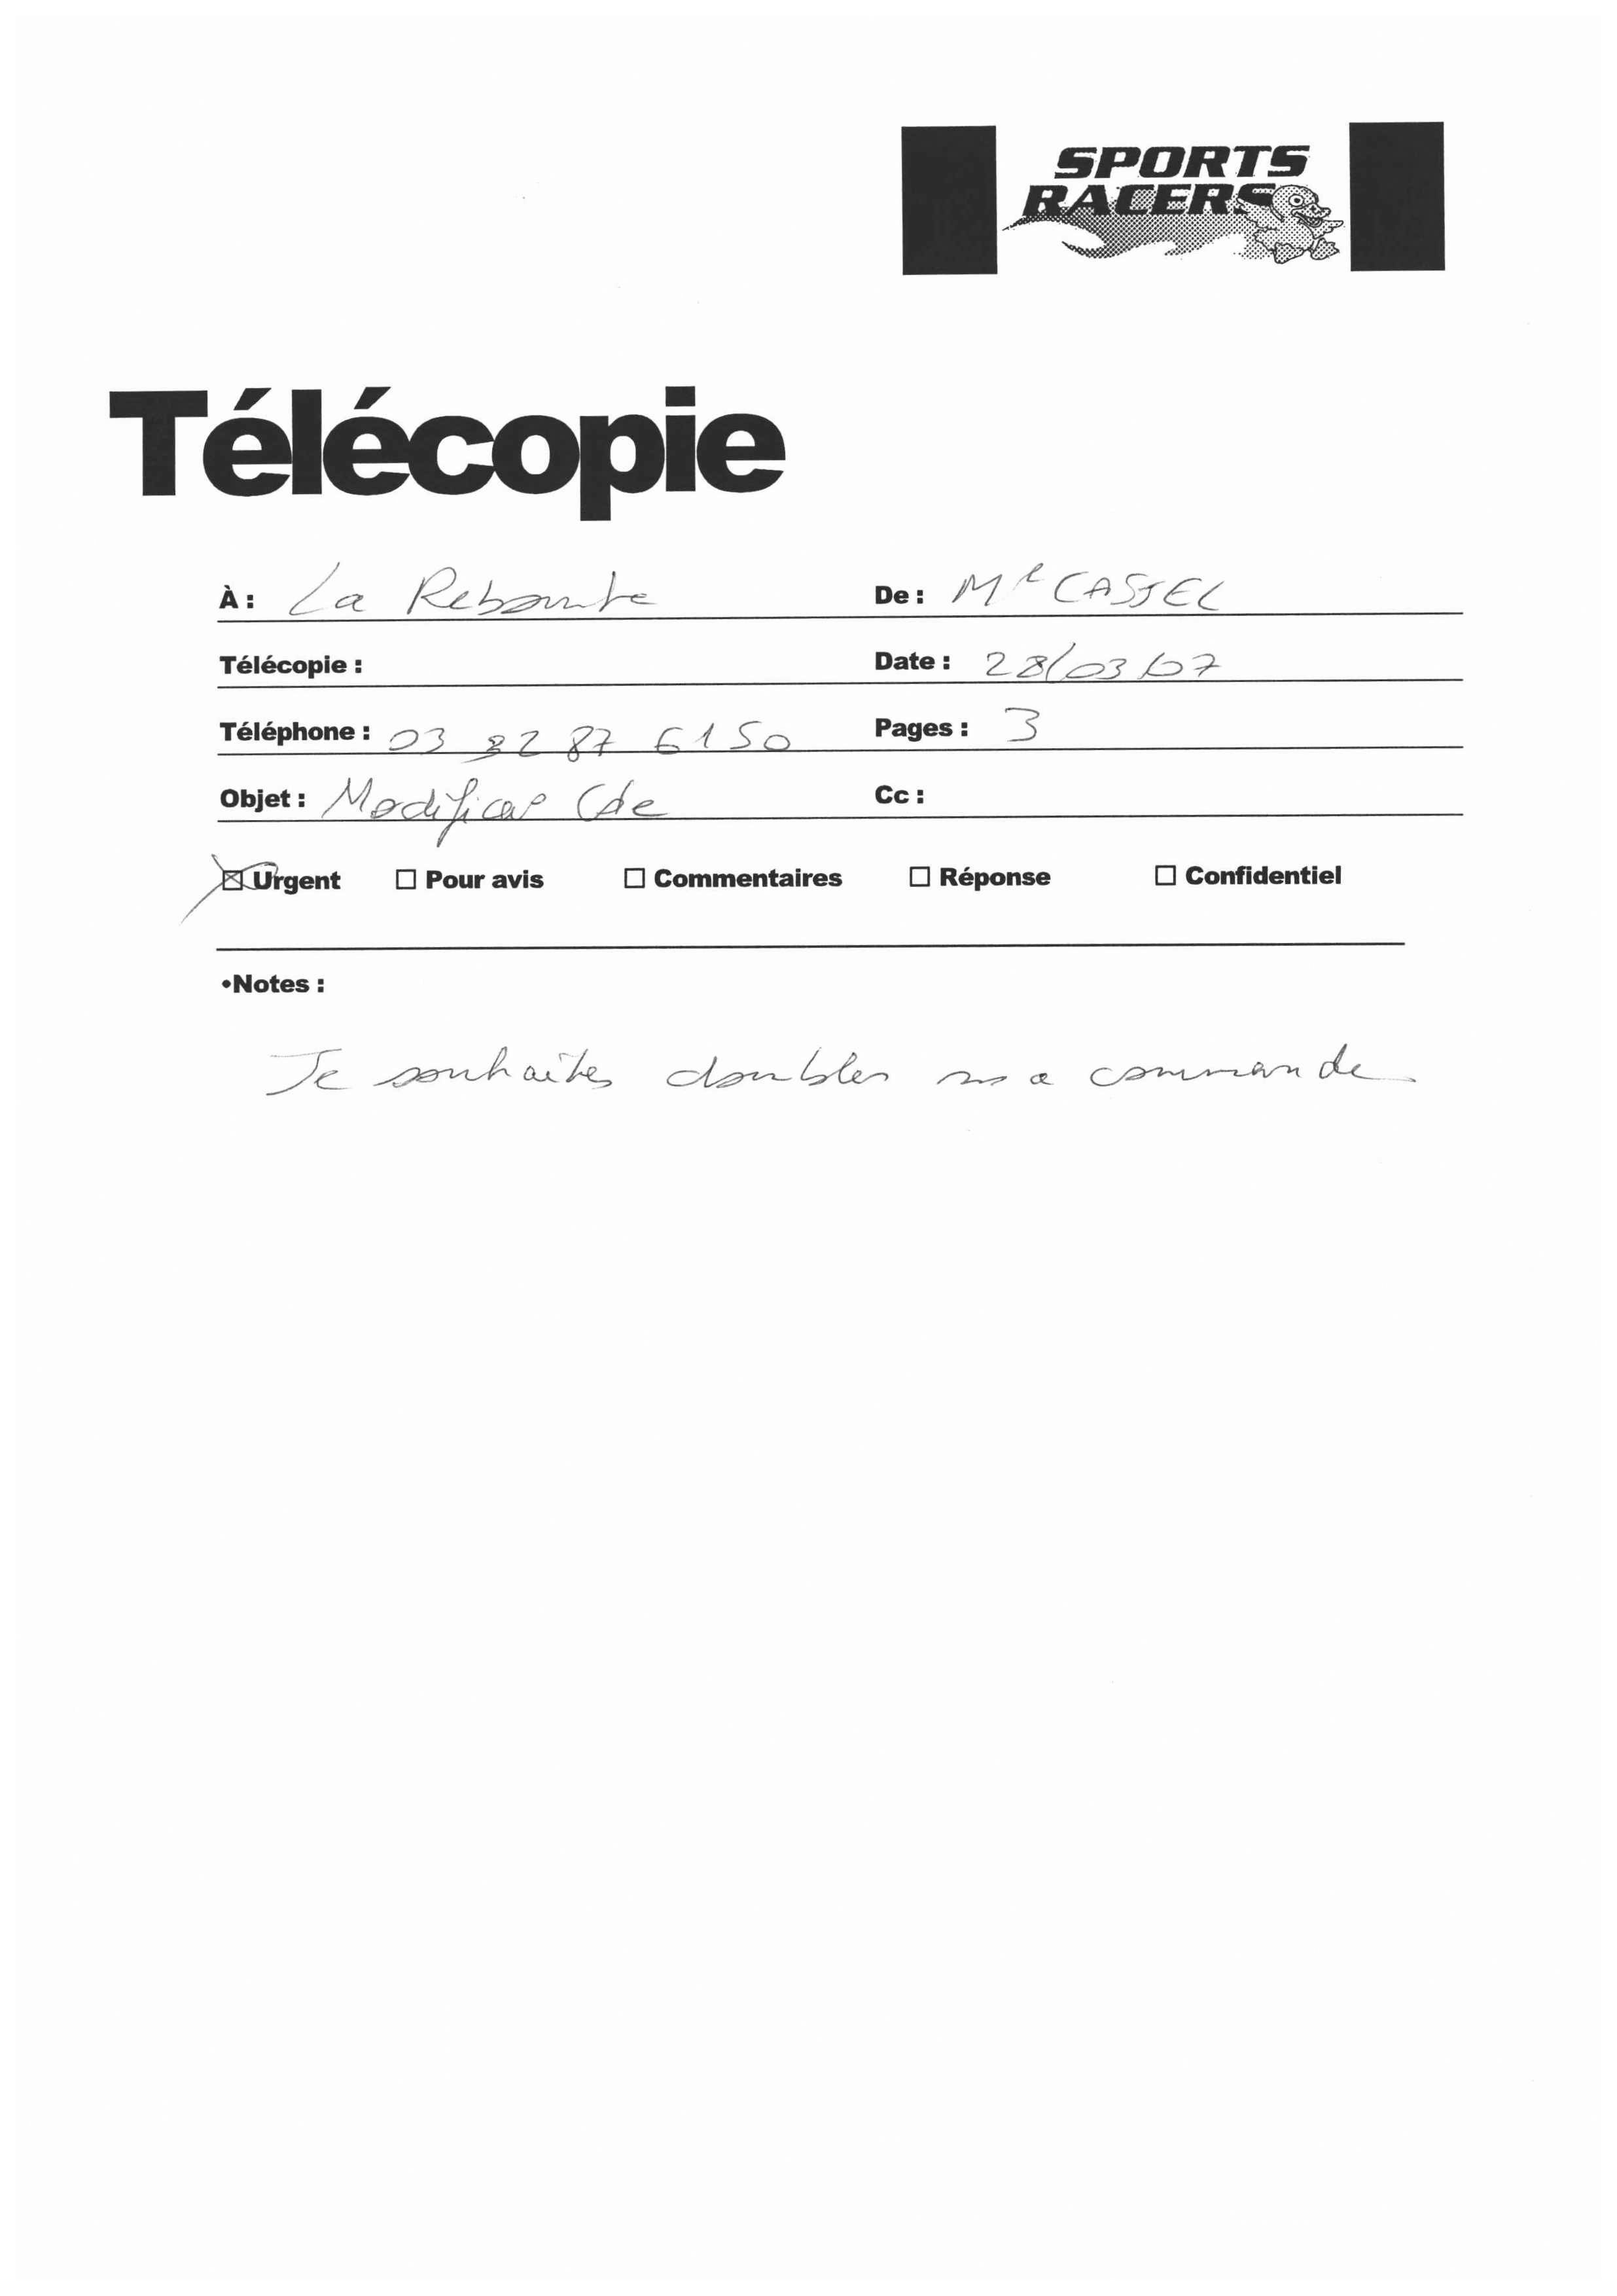 SPORTS
RACERS
Télécopie
À : La Redoute De : Mr CASSEL
Télécopie : Date : 28/03/07
Téléphone : 03 82 87 61 50 Pages : 3
Objet : Modifica° Cde Cc :
☒ Urgent ☐ Pour avis ☐ Commentaires ☐ Réponse ☐ Confidentiel
•Notes :
Je souhaites doubler ma commande